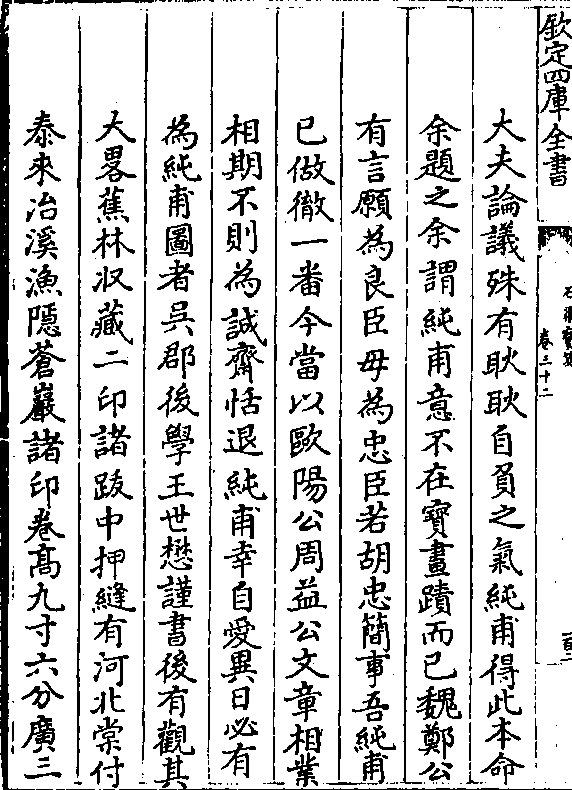 欽定四庫全書
石渠寶笈
卷三十二
大夫論議殊有耿耿自負之氣純甫得此本命
余題之余謂純甫意不在寳畫蹟而已魏鄭公
有言願為良臣毋為忠臣若胡忠簡事吾純甫
已做徹一番今當以歐陽公周益公文章相業
相期不則為誠齋恬退純甫幸自愛異日必有
為純甫圖者吳郡後學王世懋謹書後有觀其
大畧蕉林収藏二印諸跋中押縫有河北棠付
泰來冶溪漁隱蒼巖諸印卷髙九寸六分廣三